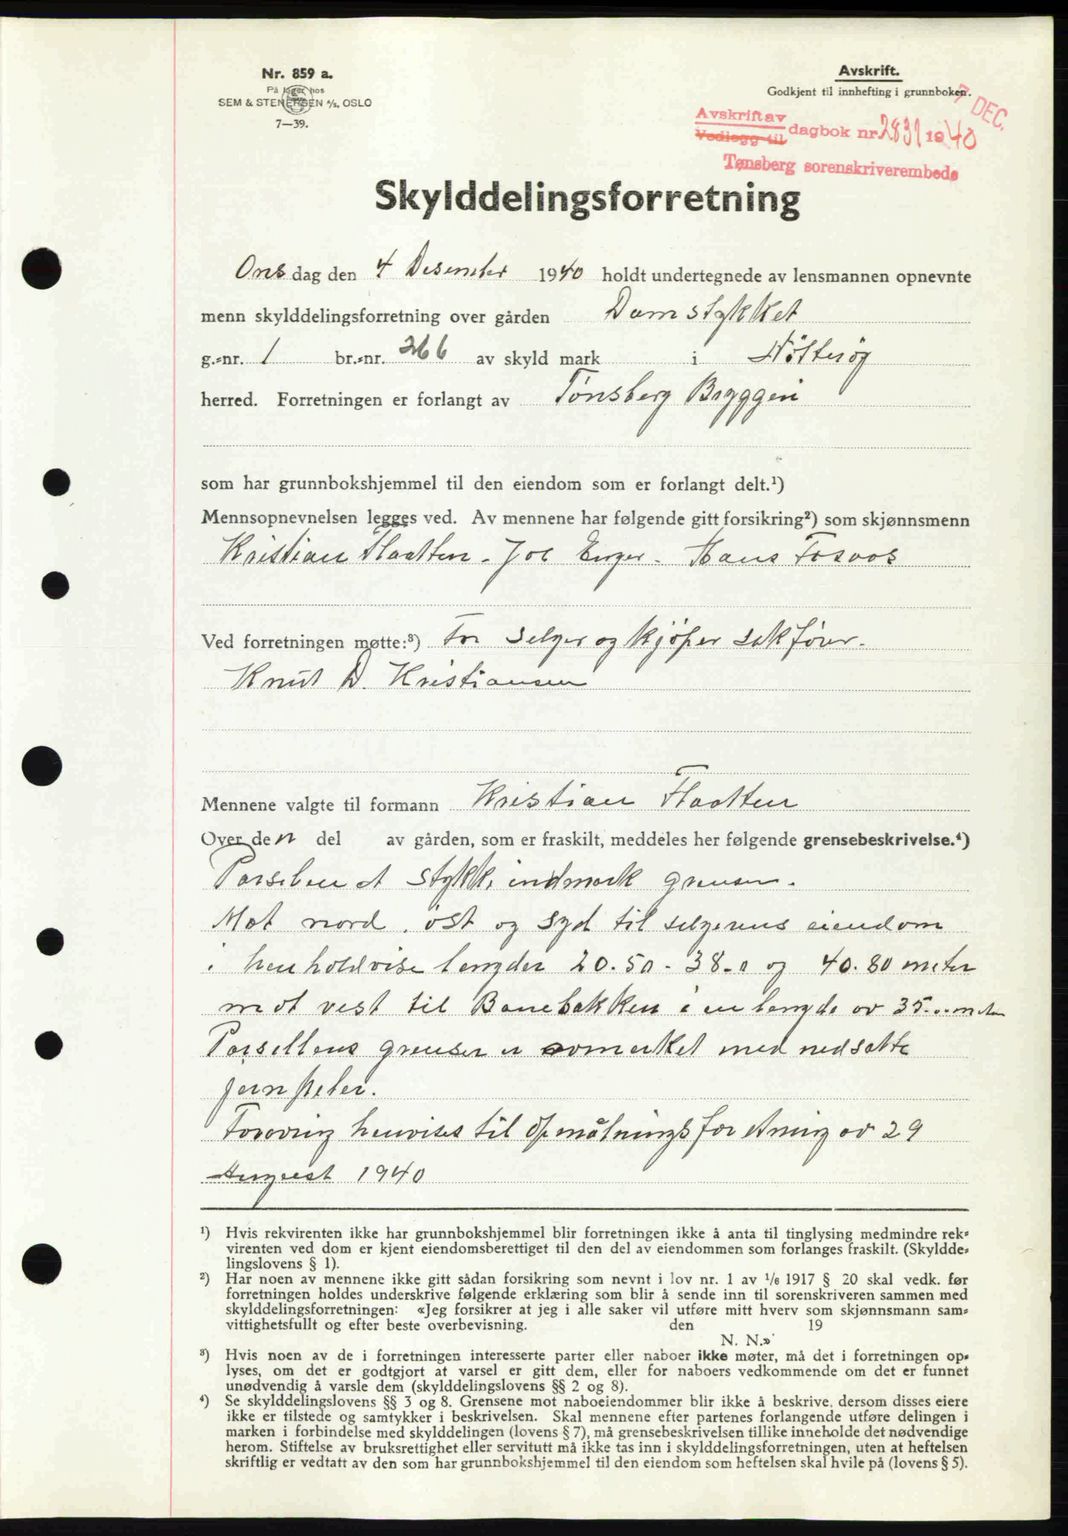 Nr. 859 a.
På lager hos
SEM & STENERSEN A/S. OSLO
7—39.
Avskrift.
Godkjent til innhefting i grunnboken.
7 DEC.
Avskrift av
Vedlegg til dagbok nr 2831 1940
Tønsberg sorenskriverembede
Skylddelingsforretning
Onsdag den 4 Desember 1940 holdt undertegnede av lensmannen opnevnte
menn skylddelingsforretning over gården Damstykket
g.-nr. 1 br.-nr. 266 av skyld mark i Nøtterøy
herred. Forretningen er forlangt av Tønsberg Bryggeri
som har grunnbokshjemmel til den eiendom som er forlangt delt.¹)
Mennsopnevnelsen legges ved. Av mennene har følgende gitt forsikring²) som skjønnsmenn
Kristian Flaatten - Joe Enger - Hans
Ved forretningen møtte:³) For selger og kjøper sakfører
Knut D. Kristiansen
Mennene valgte til formann Kristian Flaatten
Over den del av gården, som er fraskilt, meddeles her følgende grensebeskrivelse.⁴)
Parsellen et stykke indmark grenser.
Mot nord, øst og syd til selgerens eiendom
i henholdvise lengder 20.50 - 38.0 og 40.80 meter
mot vest til Banebakken i en lengde av 35.00 meter
Parsellens grenser er avmerket med nedsatte
jernpeler.
Forøvrig henvises til opmålningsforretning av 29
August 1940
¹) Hvis rekvirenten ikke har grunnbokshjemmel blir forretningen ikke å anta til tinglysing medmindre rek-
virenten ved dom er kjent eiendomsberettiget til den del av eiendommen som forlanges fraskilt. (Skyldde-
lingslovens § 1).
²) Har noen av mennene ikke gitt sådan forsikring som nevnt i lov nr. 1 av 1/6 1917 § 20 skal vedk. før
forretningen holdes underskrive følgende erklæring som blir å sende inn til sorenskriveren sammen med
skylddelingsforretningen: «Jeg forsikrer at jeg i alle saker vil utføre mitt hverv som skjønnsmann sam-
vittighetsfullt og efter beste overbevisning. den 19
N. N.»
³) Hvis noen av de i forretningen interesserte parter eller naboer ikke møter, må det i forretningen op-
lyses, om det er godtgjort at varsel er gitt dem, eller for naboers vedkommende om det er funnet
unødvendig å varsle dem (skylddelingslovens §§ 2 og 8).
⁴) Se skylddelingslovens §§ 3 og 8. Grensene mot naboeiendommer blir ikke å beskrive, dersom disses eiere
ikke er tilstede og samtykker i beskrivelsen. Skal mennene efter partenes forlangende utføre delingen i
marken i forbindelse med skylddelingen (lovens § 7), må grensebeskrivelsen tillike inneholde det nødvendige
herom. Stiftelse av bruksrettighet eller servitutt må ikke tas inn i skylddelingsforretningen, uten at heftelsen
skriftlig er vedtatt av den som har grunnbokshjemmel til den eiendom som heftelsen skal hvile på (lovens § 5).